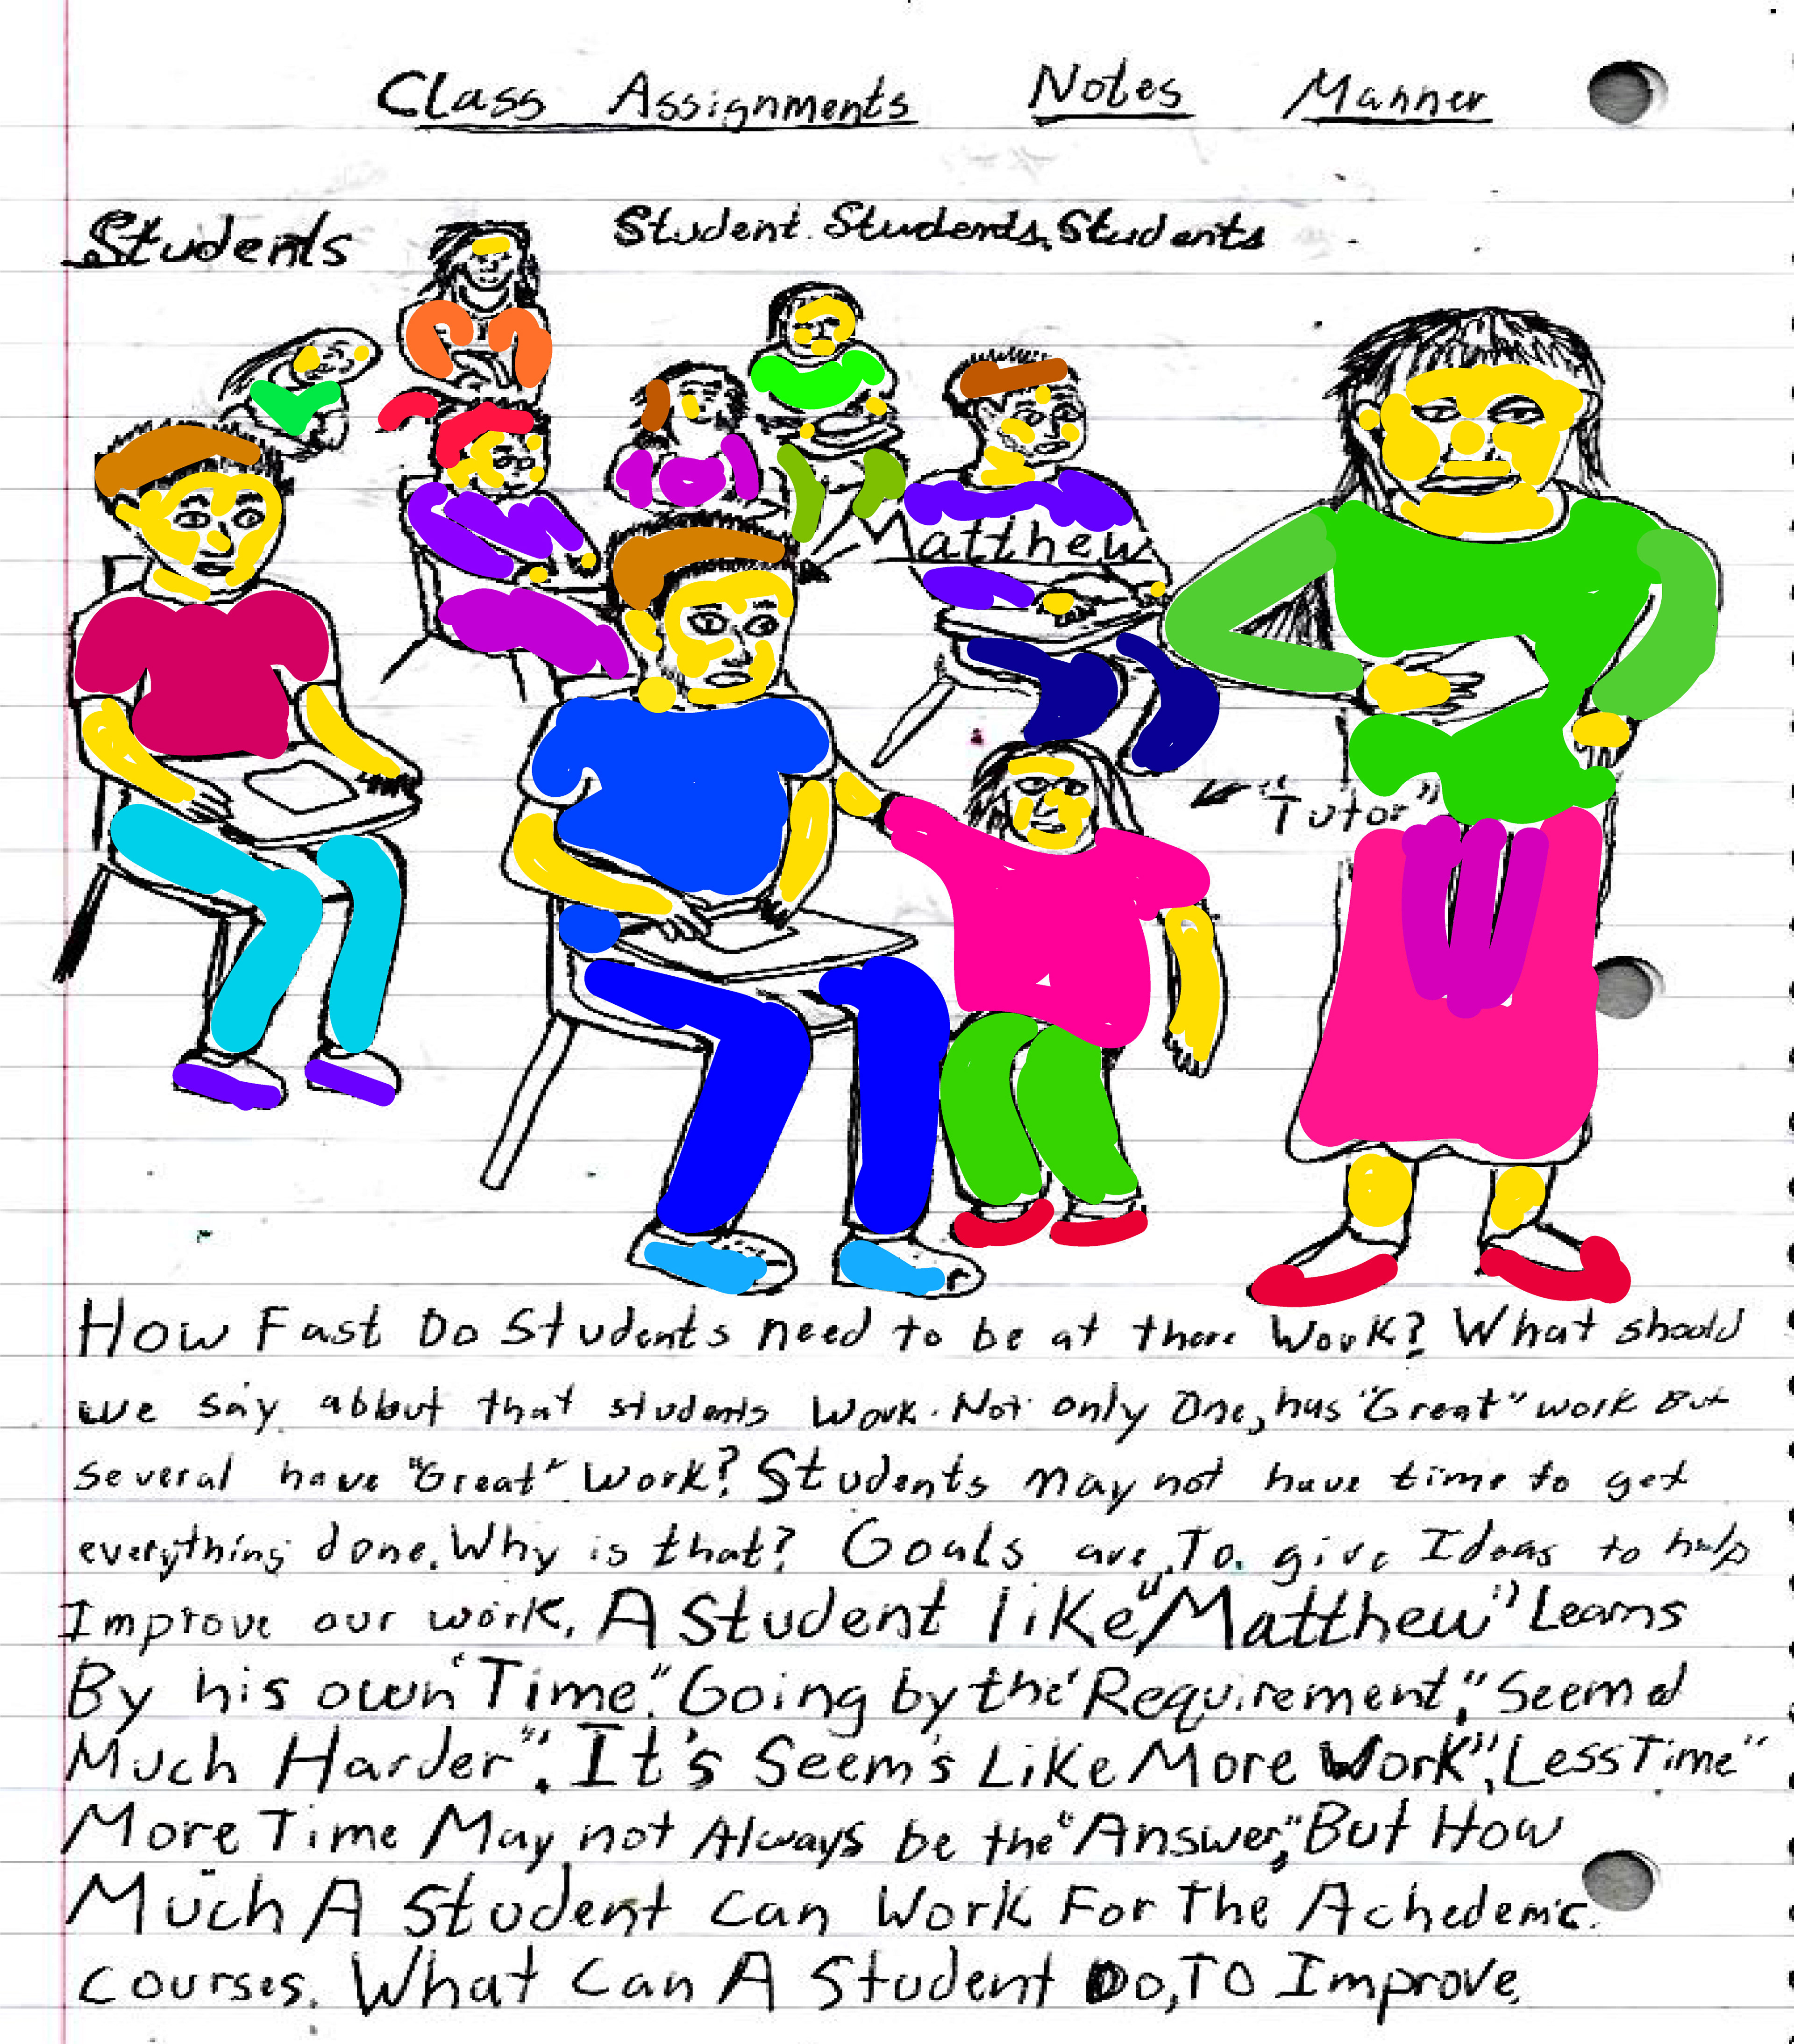 Class Assignments Notes Manner
Students Student. Students, Students
Matthew
"Tutor"
How Fast Do Students need to be at there Work? What should
we say abbut that students Work. Not only One, has "Great" work But
Several have "Great" Work? Students may not have time to get
everything done. Why is that? Goals are, To. give Ideas to help
Improve our work. A Student like "Matthew" Learns
By his own "Time." Going by the "Requirement," Seemed
Much Harder". It's Seem's Like More Work", Less Time"
More Time May not Always be the "Answer," But How
Much A Student can Work For The Achedemic.
courses. What Can A Student Do, To Improve,